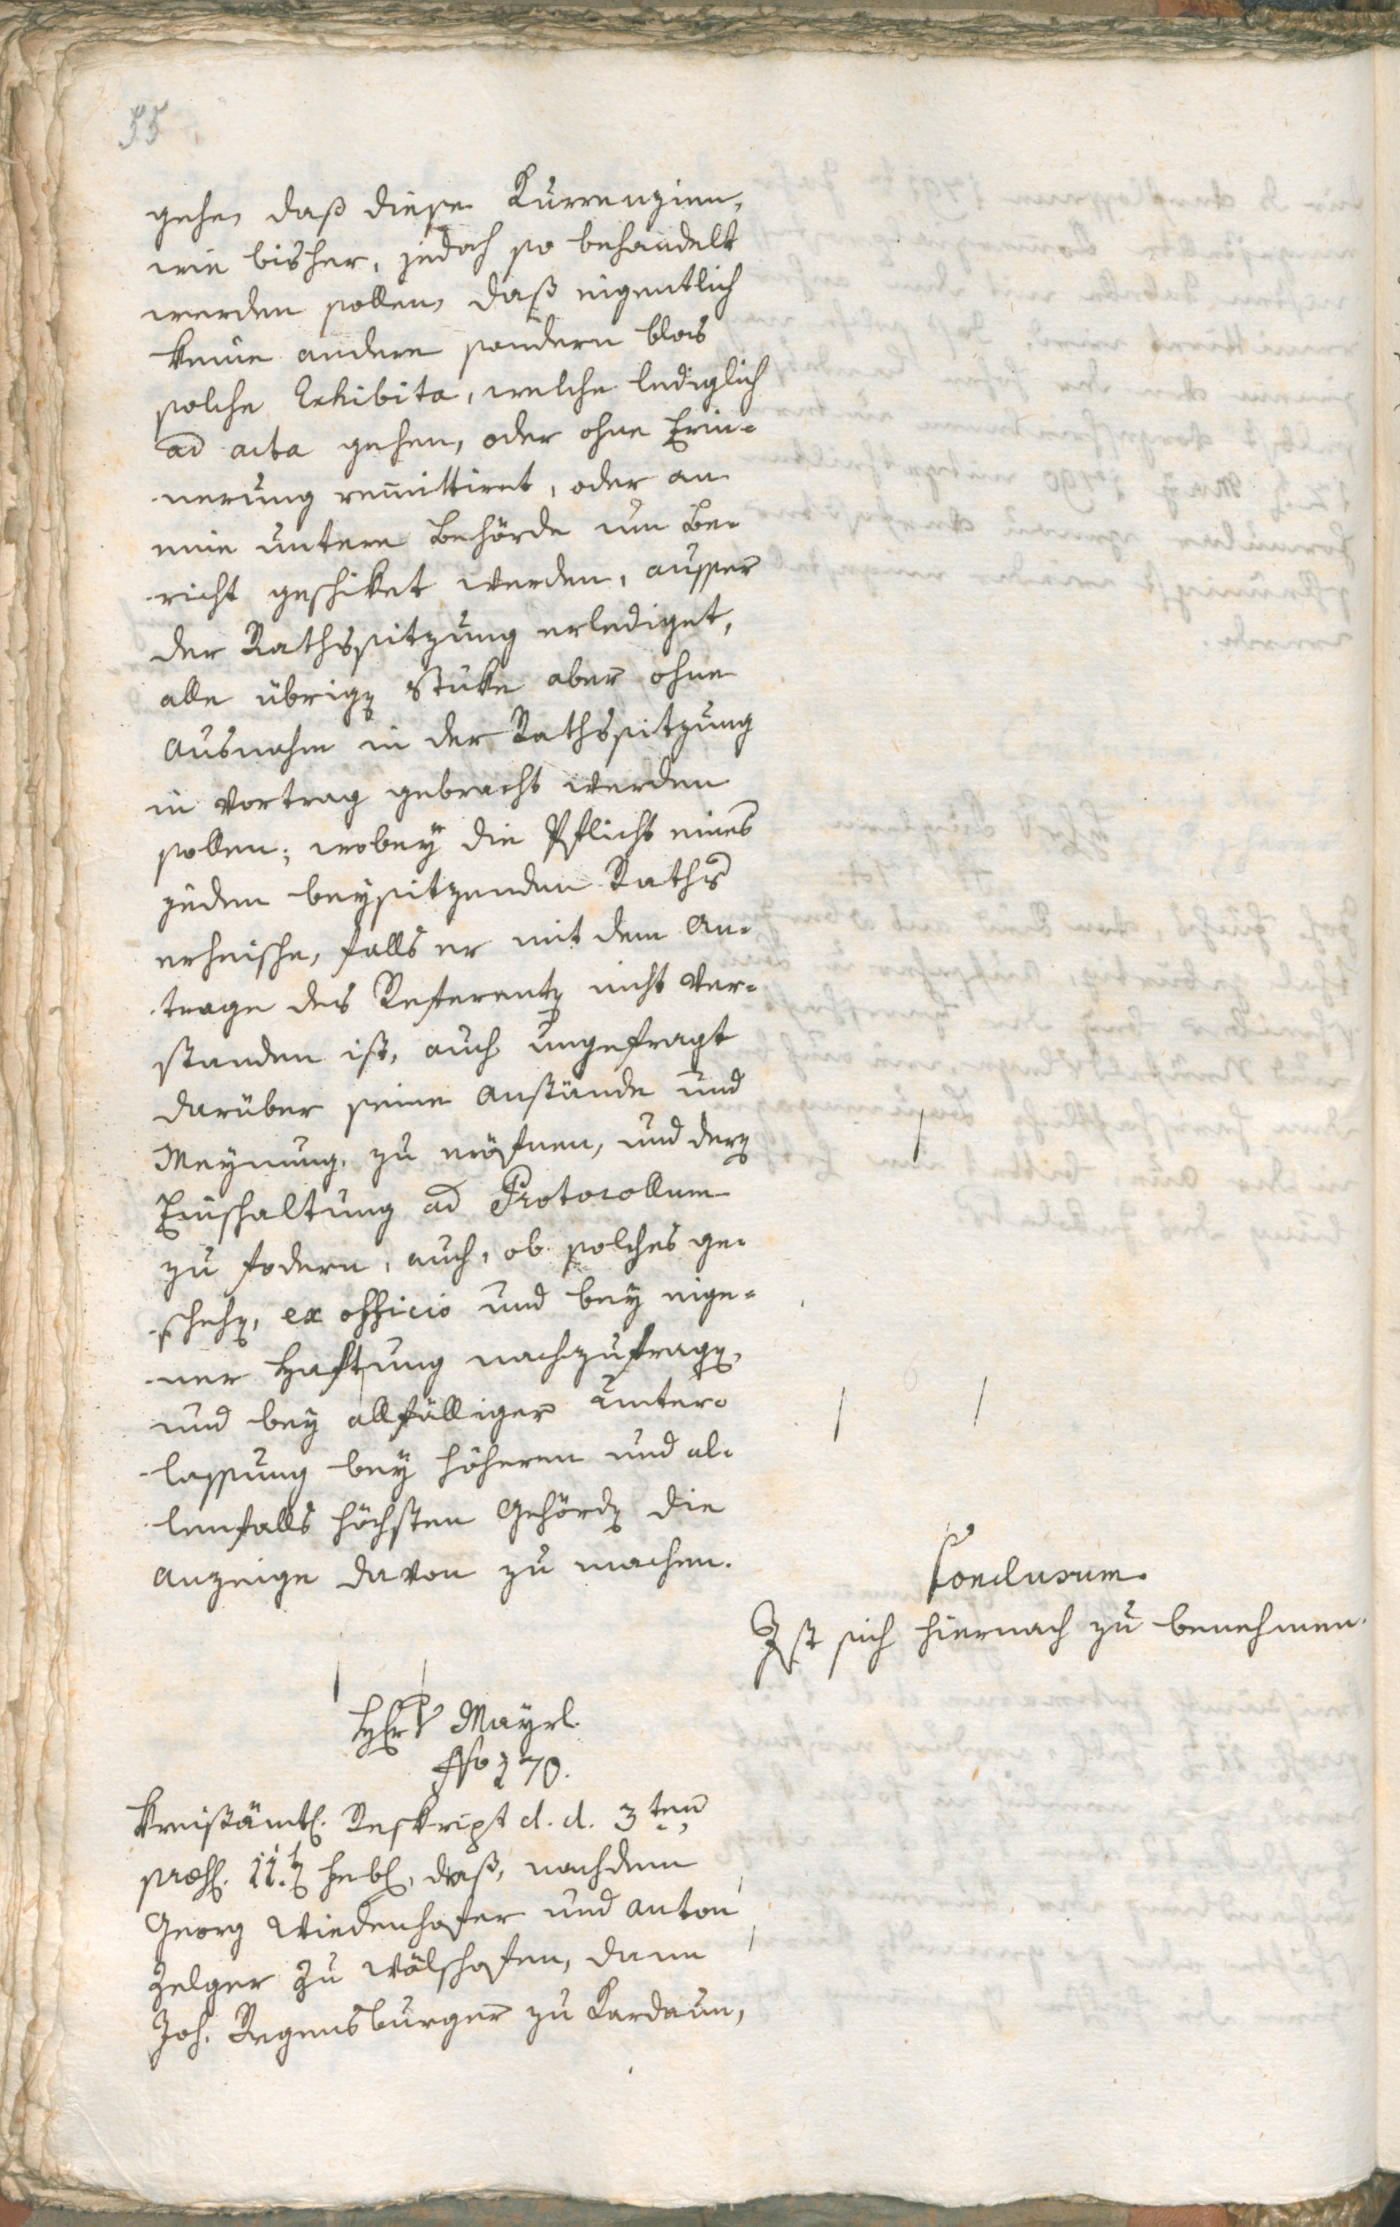 55
gehe, daß diese Kurrenzien,
wie bisher, jedoch so behandelt
werden sollen, daß eigentlich
keine andere sondern blos
solche Exhibita, welche lediglich
ad acta gehen, oder ohne Erin-
nerung remittiret, oder an
eine untere Behörde um Be-
richt geschiket werden, ausser
der Rathssitzung erlediget,
alle übrigen Stüke aber ohne
Ausnahm in der Rathssitzung
in Vortrag gebracht werden
sollen; wobey die Pflicht eines
jeden beysitzenden Raths
erheische, falls er mit dem An-
trage des Referenten nicht ver-
standen ist, auch ungefragt
darüber seine Anstände und
Meynung zu eröfnen, und deren
Einschaltung ad Protocollum
zu fodern, auch, ob solches ge-
schehen, ex officio und bey eige-
ner Haftung nachzufragen,
und bey allfälliger Unter-
lassung bey höheren und al-
lenfalls höchsten Behörden die
Anzeige davon zu machen.
Conclusum.
Ist sich hiernach zu benehmen.
Mayrl.
No 270.
Kreisämtl. Reskript d. d. 3ten
praes. 11. , daß, nachdem
Georg Wiedenhofer und Anton
Zelger zu Wälschofen, dann
Joh. Regensburger zu Kardaun,